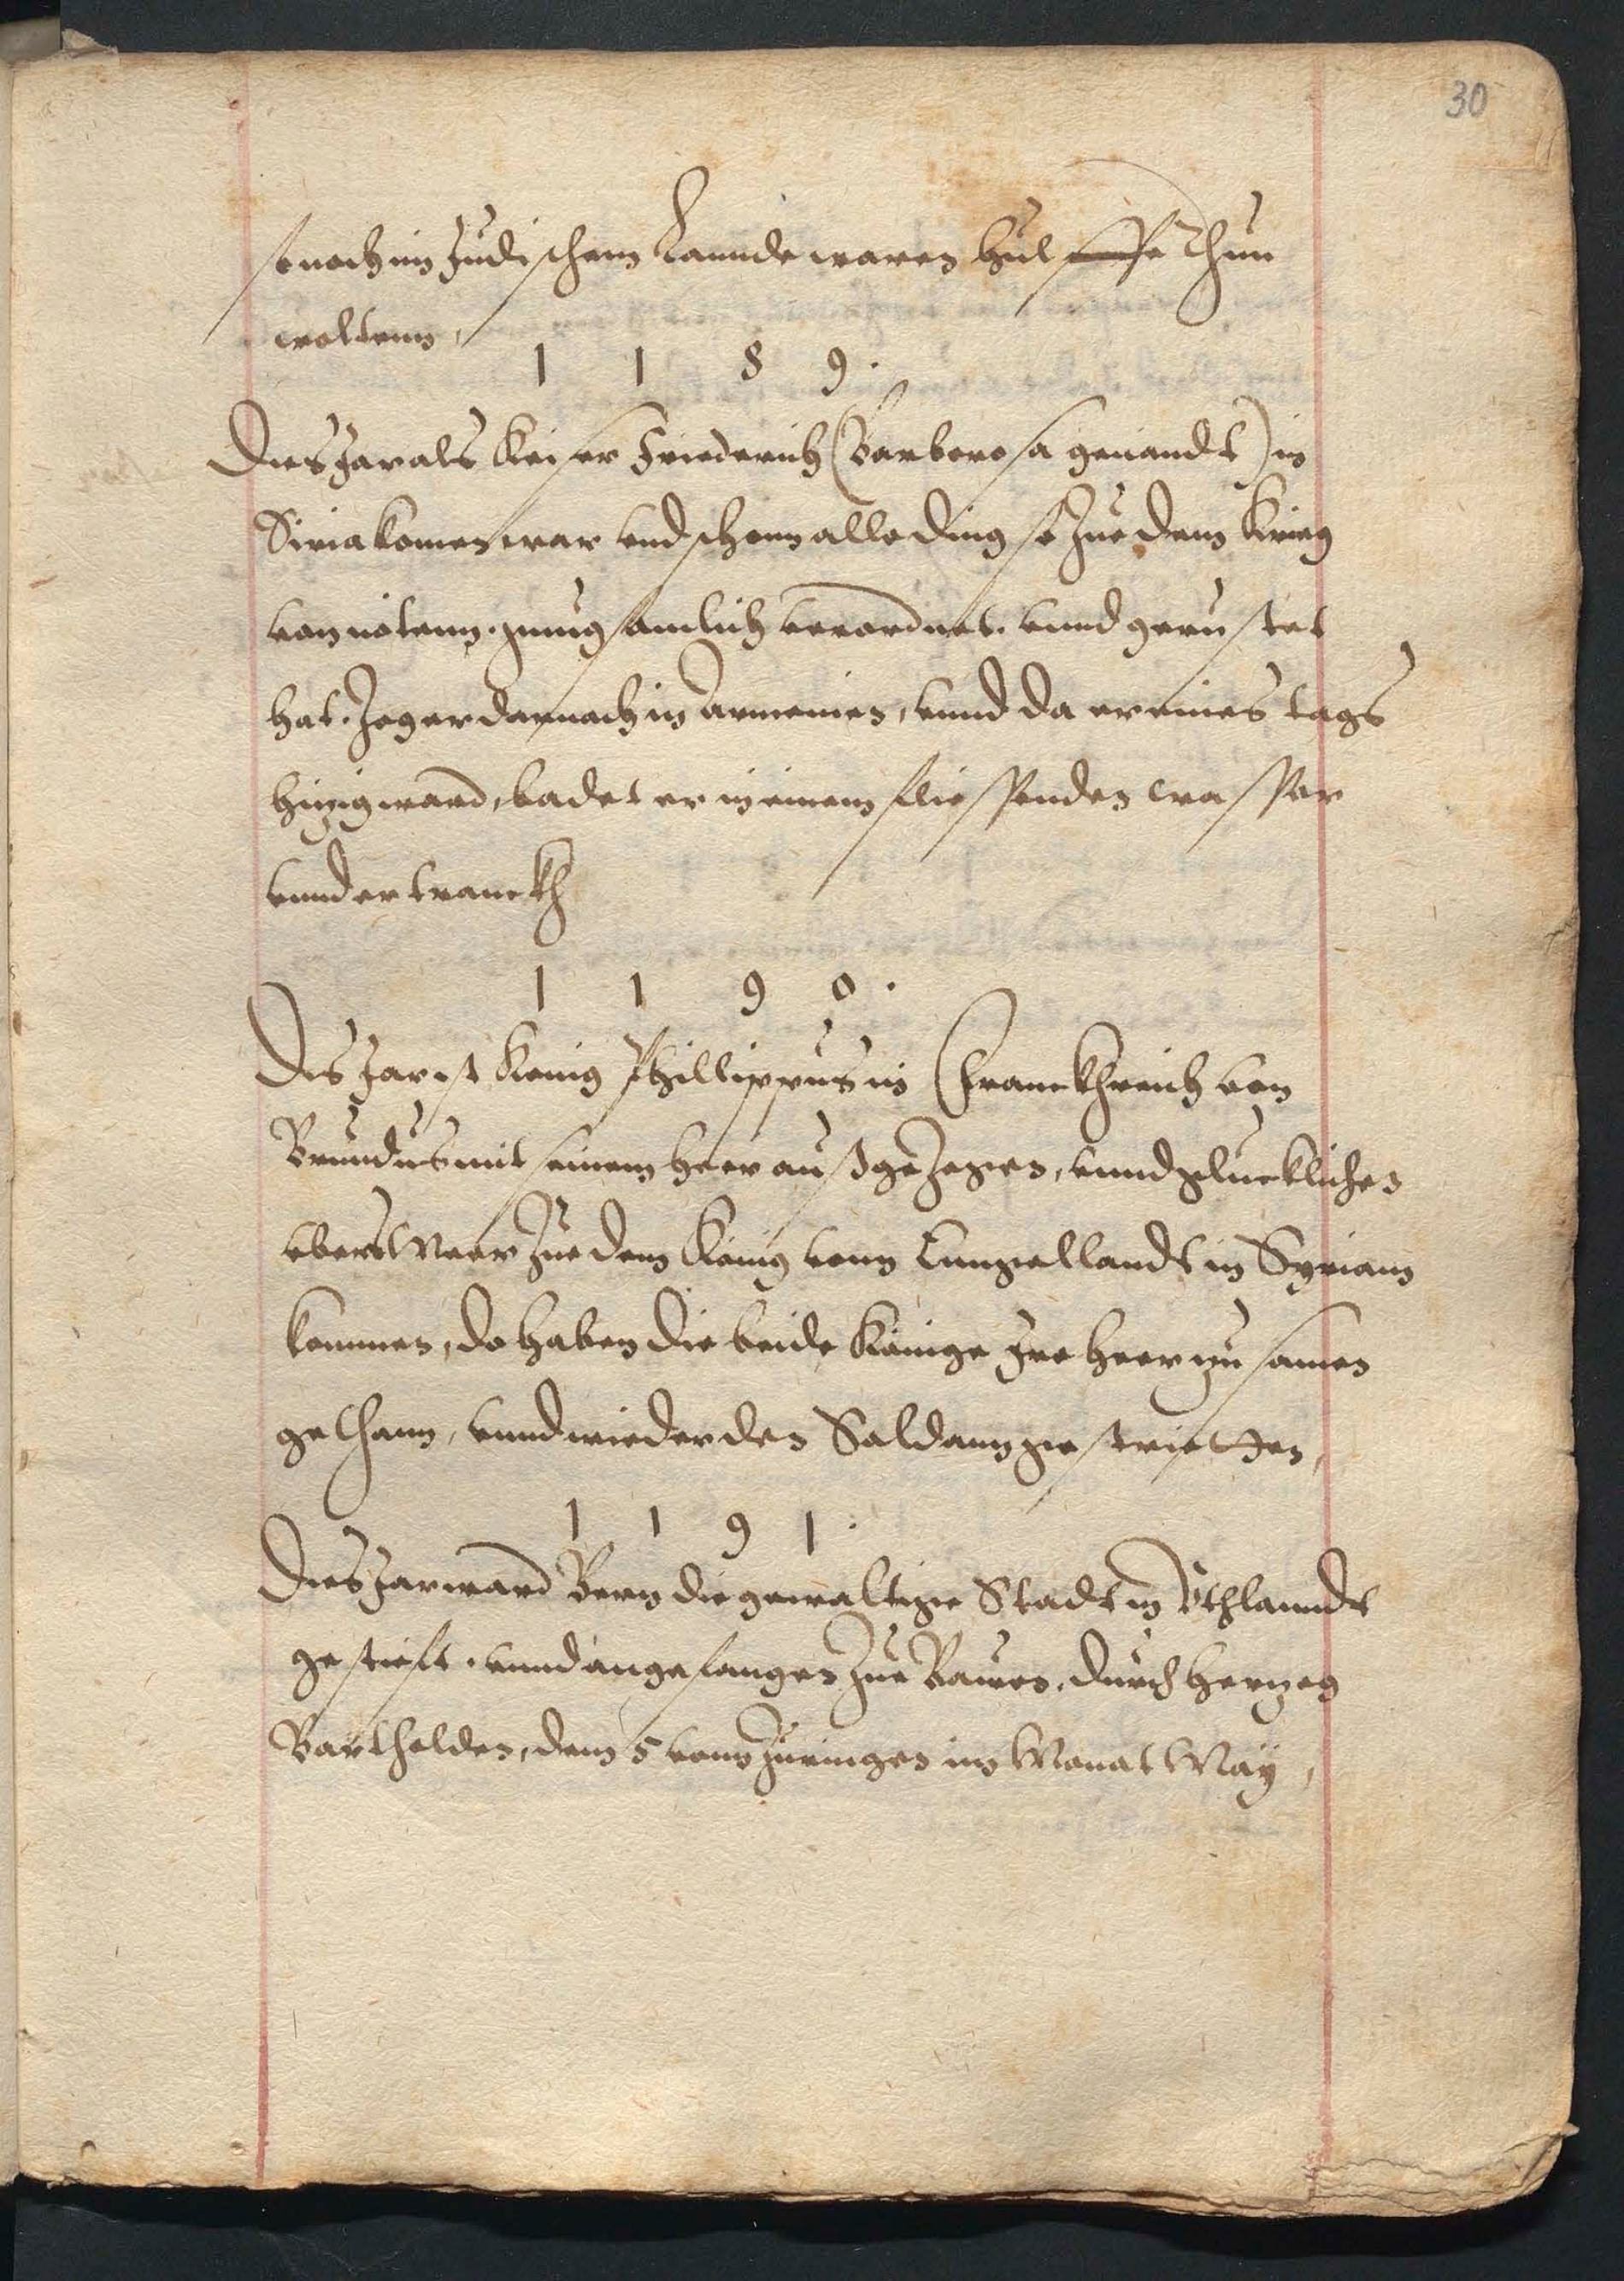 30
so noch im Judischem Lannde waren hülffe thun
woltenn,
1 1 8 9 .
Dies Jar als Keiser Friederich (Barberosa genandt) in
Siria komen war und schonn alle ding so Zue dem Krieg
von nötenn . gnugsamlich verordnet . vnnd gerustet
hat . Zog er darnach in Armenien, vnnd da er eines tags
hitzig ward, badet er in einem fliessenden wasser
vnnd ertranckh
1 1 9 0 .
Dis Jar ist Konig Phillippus in Franckhreich von
Brundus mit seinem heer außgezogen, vnnd gluecklichen
vbers Meer Zue dem König vonn Enngellandt in Syriam
kommen, do haben die beide Könige Jre heer zusamen
gethann, vnnd wieder den Saldann gestrietten,
1 1 9 1 .
Dies Jar ward Bern die gewaltige Stadt in Vchlanndt
gestieft . vnnd angefangen Zue Bawen . durch Hertzog
Barthelden, dem 5 vonn Züringen im Monat Maÿ,